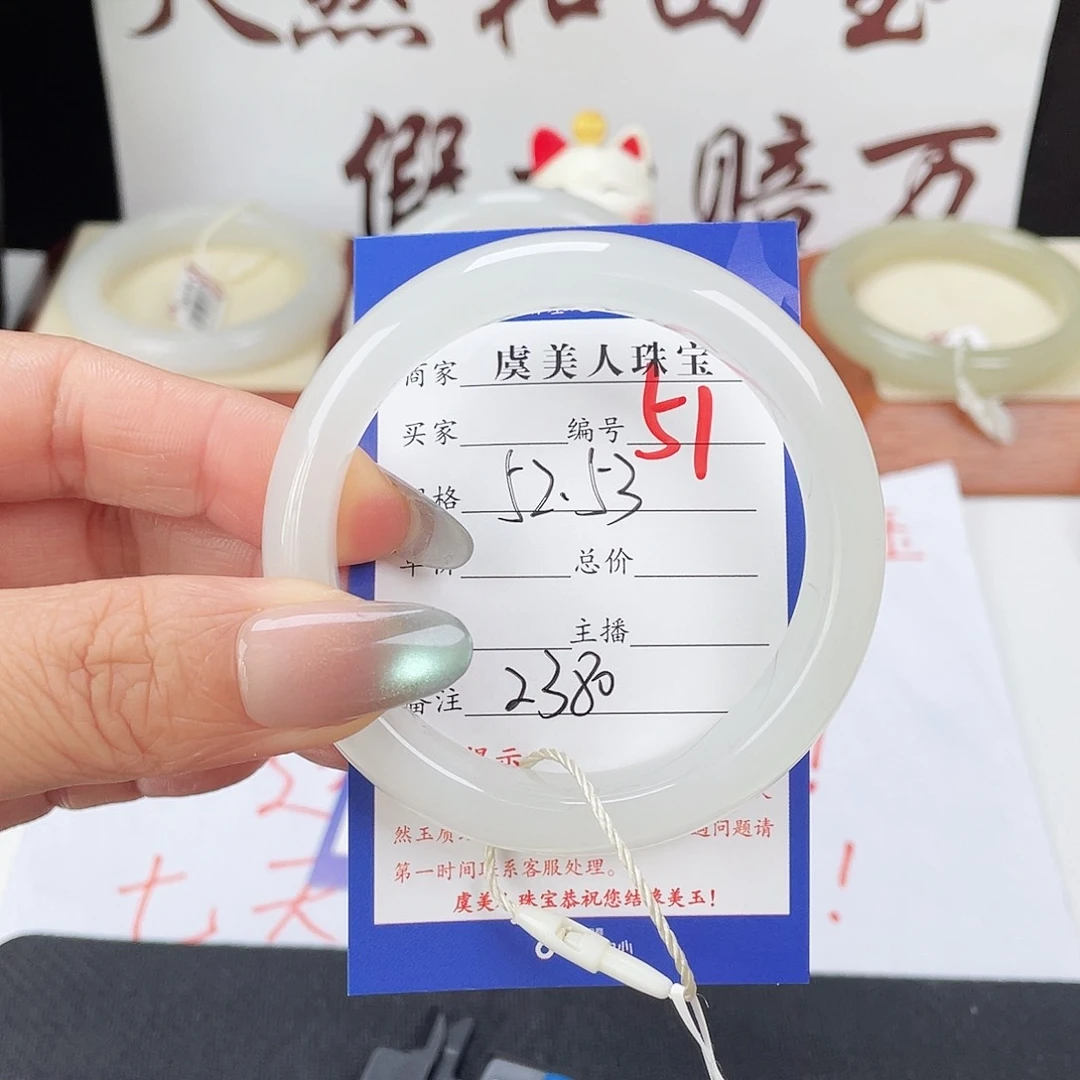 天然和田玉
假 赔万
商家 虞美人珠宝
买家 编号 51
格 52.53
总价
主播
备注 2380
提示
然玉质 问题请
第一时间联系客服处理。
虞美人珠宝恭祝您结缘美玉!
七天